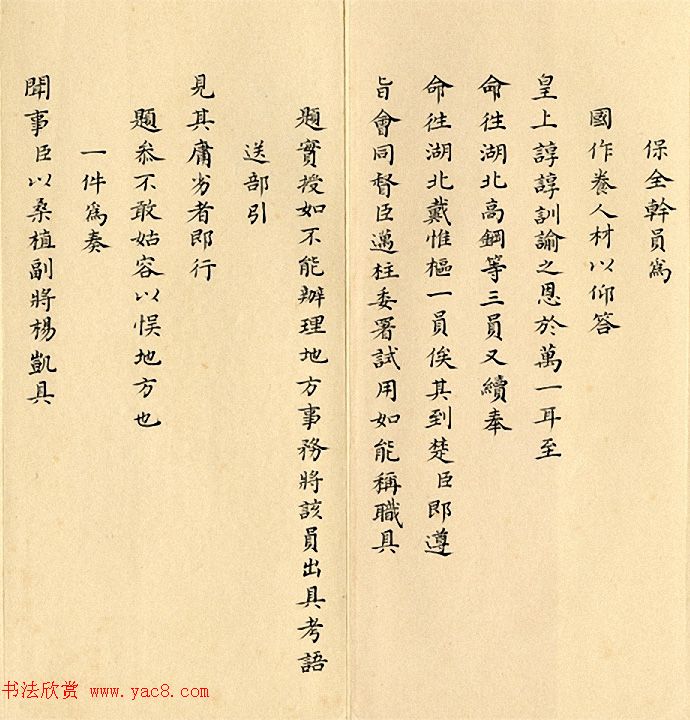 保全幹員為
國作養人材以仰答
皇上諄諄訓諭之恩於萬一耳至
命徃湖北高鋼等三員又續奉
命徃湖北戴惟樞一員俟其到楚臣即遵
旨會同督臣邁柱委署試用如能稱職具
題實授如不能辦理地方事務將該員出具考語
送部引
見其庸劣者即行
題叅不敢姑容以悮地方也
一件為奏
聞事臣以桑植副將楊凱具
书法欣赏 www.yac8.com